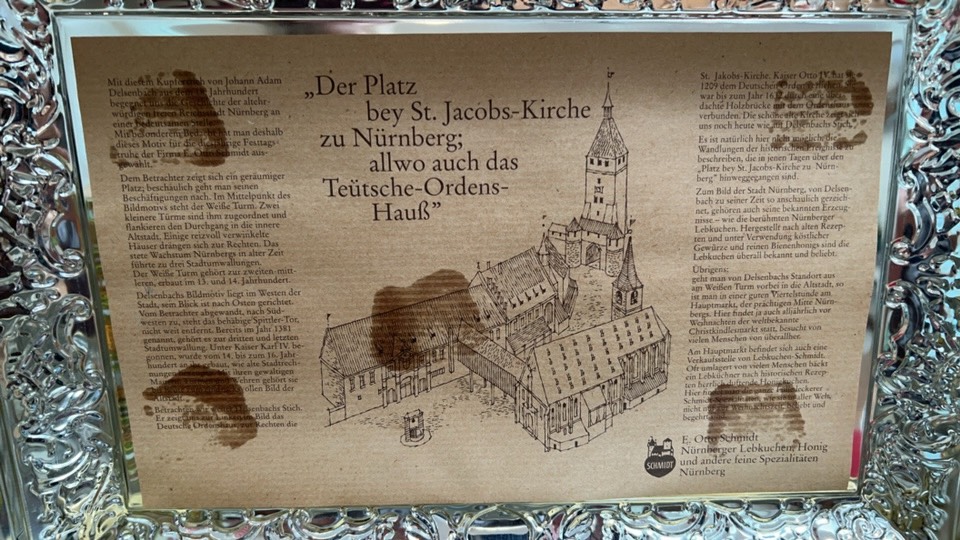 Mit diesem Kupferstich von Johann Adam
Delsenbach aus dem Jahrhundert
begegnet uns die der altehr-
würdigen Freien Reichsstadt Nürnberg an
einer
Mit besonderem Bedacht hat man deshalb
dieses Motiv für die diesjährige Festtags-
truhe der Firma E. Otto Schmidt aus-
gewählt.
Dem Betrachter zeigt sich ein geräumiger
Platz; beschaulich geht man seinen
Beschäftigungen nach. Im Mittelpunkt des
Bildmotivs steht der Weiße Turm. Zwei
kleinere Türme sind ihm zugeordnet und
flankieren den Durchgang in die innere
Altstadt. Einige reizvoll verwinkelte
Häuser drängen sich zur Rechten. Das
stete Wachstum Nürnbergs in alter Zeit
führte zu drei Stadtumwallungen.
Der Weiße Turm gehört zur zweiten mitt-
leren, erbaut im 13. und 14. Jahrhundert.
Delsenbachs Bildmotiv liegt im Westen der
Stadt, sein Blick ist nach Osten gerichtet.
Vom Betrachter abgewandt, nach Süd-
westen zu, steht das behäbige Spittler-Tor,
nicht weit entfernt. Bereits im Jahr 1381
genannt, gehört es zur dritten und letzten
Stadtumwallung. Unter Kaiser Karl IV. be-
gonnen, wurde vom 14. bis zum 16. Jahr
hundert an ihr gebaut, wie alte Stadtrech-
nungen
Mauern
Wehren gehört sie
vollen Bild der
Altstadt.
Betrachten wir weiter Delsenbachs Stich.
Er zeigt Bild das
Deutsche Ordenshaus, zur Rechten die
„Der Platz
bey St. Jacobs-Kirche
zu Nürnberg;
allwo auch das
Teütsche-Ordens-
Hauß”
St. Jakobs-Kirche. Kaiser Otto IV. hat sie
1209 dem Deutschen Orden
war bis zum Jahr
dachte Holzbrücke mit dem Ordenshaus
verbunden. Die schöne alte Kirche zeigt sich
uns noch heute wie auf Delsenbachs Stich.
Es ist natürlich hier nicht möglich, die
Wandlungen der historischen Ereignisse zu
beschreiben, die in jenen Tagen über den
„Platz bey St. Jacobs-Kirche zu Nürn-
berg” hinweggegangen sind.
Zum Bild der Stadt Nürnberg, von Delsen-
bach zu seiner Zeit so anschaulich gezeich-
net, gehören auch seine bekannten Erzeug-
nisse – wie die berühmten Nürnberger
Lebkuchen. Hergestellt nach alten Rezep-
ten und unter Verwendung köstlicher
Gewürze und reinen Bienenhonigs sind die
Lebkuchen überall bekannt und beliebt.
Übrigens:
geht man von Delsenbachs Standort aus
am Weißen Turm vorbei in die Altstadt, so
ist man in einer guten Viertelstunde am
Hauptmarkt, der prächtigen Mitte Nürn-
bergs. Hier findet ja auch alljährlich vor
Weihnachten der weltbekannte
Christkindlesmarkt statt, besucht von
vielen Menschen von überallher.
Am Hauptmarkt befindet sich auch eine
Verkaufsstelle von Lebkuchen-Schmidt.
Oft umlagert von vielen Menschen bäckt
ein Lebküchner nach historischen Rezep-
ten herrlich duftende Honigkuchen.
Hier
Schmidt aller Welt,
nicht und
begehrt
SCHMIDT
E. Otto Schmidt
Nürnberger Lebkuchen, Honig
und andere feine Spezialitäten
Nürnberg